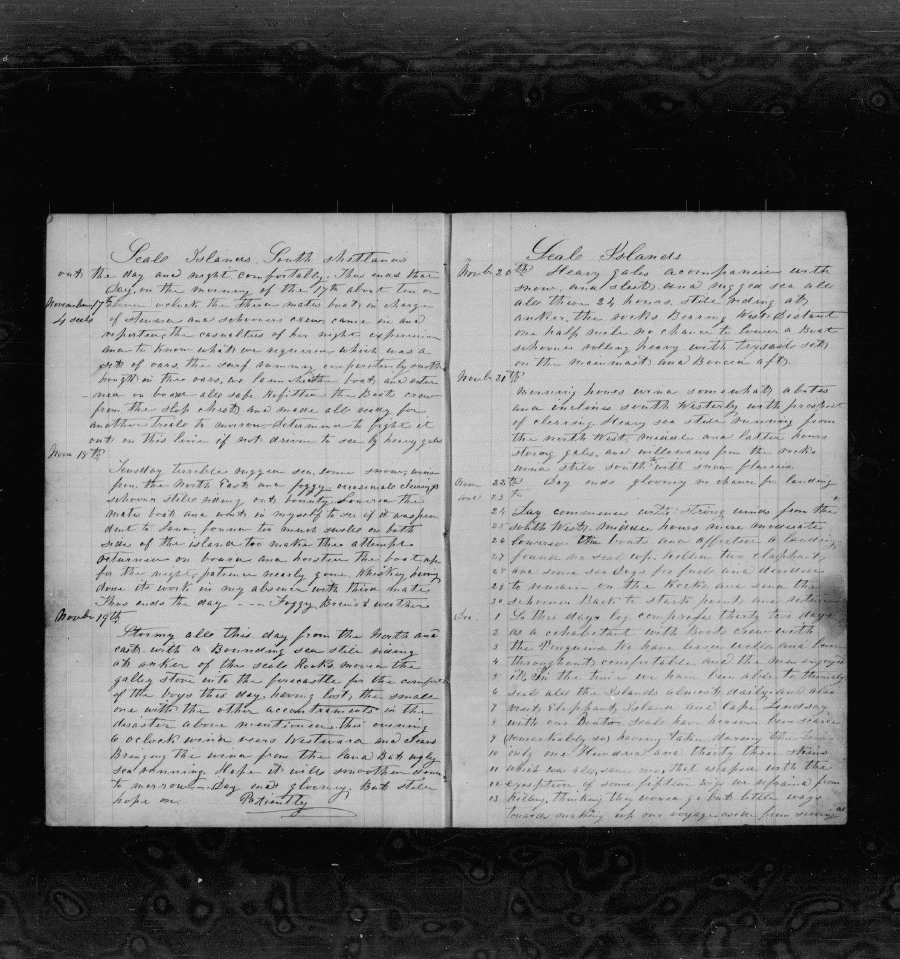 Seal Islands. South Shettlands
out the day and night comfortably. Thus ends that
Day. on the morning of the 17th about ten or
November 17th
oclock the three mates boats in charge
4 seals
of Steward and schooners crew came in and
reporting the casualties of her night experience
and to know what we required which was a
set of oars, the surf running comparitively smooth
bought in the oars, we the boat, and
men on board all safe Refitted the Boats crew
from the slop chest and made all ready for
another trial to morrow determined to fight it
out on this line if not driven to sea by heavy gales
Nove 18th
Tuesday terrible rugged sea, some snow, wind
from the North East and foggy occasionale clearings
schooner still riding out Lowered the
mates boat and went in myself to see if it was pru
dent to land, found too much swell on both
side of the island too make the attempt
returned on board and hoisted the boat up
for the night, patience nearly gone. Whiskey having
done its work in my absence with three mates
Thus ends the day - - - Foggy weather
Novbr 19th
Stormy all this day from the North and
east with a Bounding sea still riding
at anker of the seal Rocks. moved the
galey stove into the forecastle for the comfort
of the boys this day, having lost, the small
one with the other accoutraments in the
disaster above mentioned, this evening
6 oclock wind veers Westward and clears
Bringing the wind from the land But ugly
sea running. Hope it will smoothen down
to morrow. Day ends gloomy, But still
hope on. Patiently
Seal Islands.
Novbr 20th Heavy gales acompanied with
snow, and sleet, and rugged sea all
all these 24 hours, still riding at
anker. the rocks Bearing West Distant
one half mile no chance to lower a Boat
schooner rolling heavy with trysail set
on the mainmast and aft.
Novbr 21th
Morning hours wind somewhat abates
and inclines south Westerly with prospect
of clearing. Heavy sea still running from
the north West, middle and latter hours
strong gales, and from the rocks
wind still south with snow flurries.
Novm 22th Day ends gloomy no chance for landing
and 23
24 Day commences with strong winds from the
25 south West. middle hours more moderate
26 lowered the boats and affected a landing
27 found killed two elaphant
28 and some sea Dogs for fuel and decided
29 to remain on the Rocks and send the
30 schooner Back to start point and
Dec. 1 So this days log comprises thirty two days
2 as a cohabitant with Boats crew with
3 the Penguins We have lived well and been
4 throughout comfortable and the men enjoyed
5 it. In the time we have been able to thoroughly
6 seal all the Islands almost daily and also
7 visit Elephant Island and Cape Lindsay
8 with our Boats. Seals have however been scarce
9 remarkably so, having taken during the
10 only one Hundred and thirty three skins
11 which was all, save no that escaped with the
12 exseption of some fifteen wigs we refraind from
13 killing, thinking they would go but little ways
towards making up our voyage aside from serving as